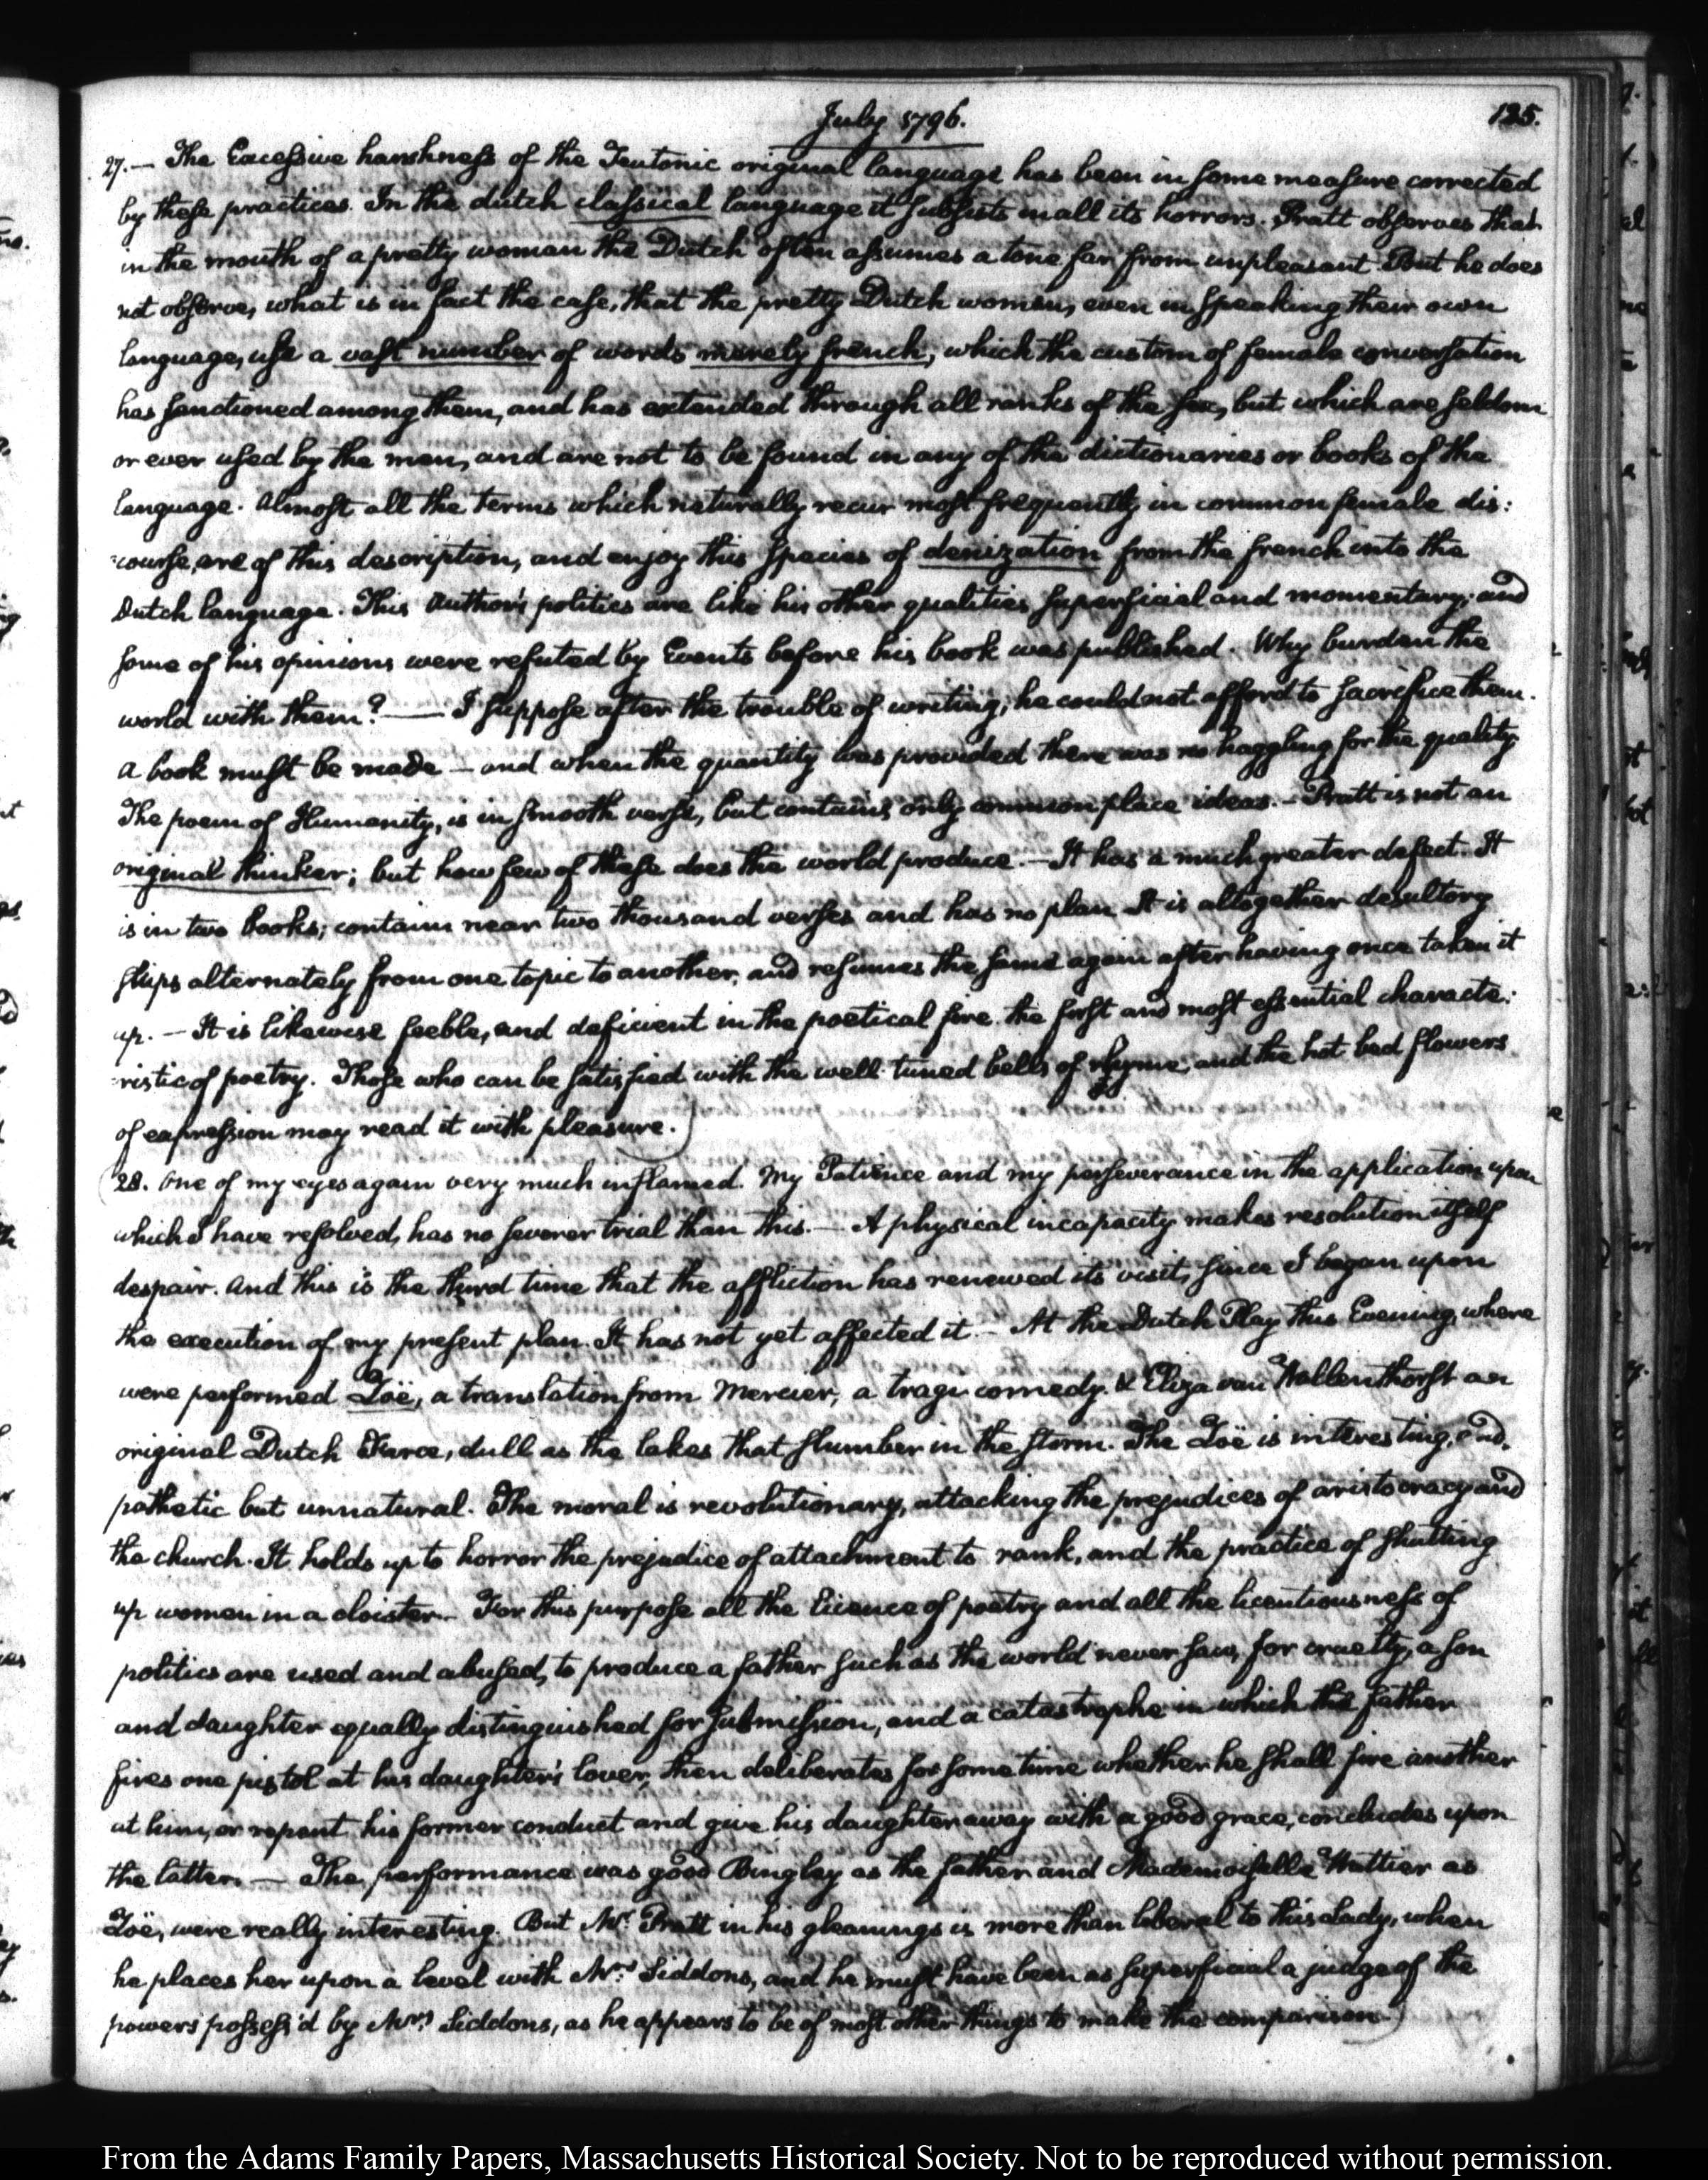 July 1796.
125.
27. — The Excessive harshness of the Teutonic original language has been in some measure corrected
by these practices. In the dutch classical language it subsists in all its horrors. Pratt observes that
in the mouth of a pretty woman the Dutch often assumes a tone far from unpleasant. But he does
not observe, what is in fact the case, that the pretty Dutch women, even in speaking their own
language, use a vast number of words merely french, which the custom of female conversation
has sanctioned among them, and has extended through all ranks of the sex, but which are seldom
or ever used by the men, and are not to be found in any of the dictionaries or books of the
language. Almost all the terms which naturally recur most frequently in common female dis:
:course, are of this description, and enjoy this species of denization from the french into the
Dutch language. This Author's politics are like his other qualities, superficial and momentary; and
some of his opinions were refuted by Events before his book was published. Why burden the
world with them? — I suppose after the trouble of writing, he could not afford to sacrifice them.
A book must be made — and when the quantity was provided there was no haggling for the quality
The poem of Humanity, is in smooth verse, but contains only common place ideas. — Pratt is not an
original thinker; but how few of these does the world produce. — It has a much greater defect. It
is in two books; contains near two thousand verses and has no plan. It is altogether desultory
skips alternately from one topic to another, and resumes the same again after having once taken it
up. — It is likewise feeble, and deficient in the poetical fire. the first and most essential characte:
:ristic of poetry. Those who can be satisfied with the well tuned bells of rhyme, and the hot bed flowers
of expression may read it with pleasure.)
(28. One of my eyes again very much inflamed. My Patience and my perseverance in the application upon
which I have resolved, has no severer trial than this. — A physical incapacity makes resolution itself
despair. And this is the third time that the affliction has renewed its visit, since I began upon
the execution of my present plan. It has not yet affected it. — At the Dutch Play this Evening, where
were performed Zöë, a translation from Mercier, a tragi comedy. & Eliza van Wallenthorst an
original Dutch Farce, dull as the lakes that slumber in the storm. The Zöë is interesting, and
pathetic but unnatural. The moral is revolutionary, attacking the prejudices of aristocracy and
the church. It holds up to horror the prejudice of attachment to rank, and the practice of shutting
up women in a cloister. — For this purpose all the licence of poetry and all the licentiousness of
politics are used and abused, to produce a father such as the world never saw, for cruelty, a son
and daughter equally distinguished for submission, and a catastrophe in which the father
fires one pistol at his daughter's lover, then deliberates for some time whether he shall fire another
at him, or repent his former conduct and give his daughter away with a good grace, concludes upon
the latter. — The performance was good Bingley as the father and Mademoiselle Wattier as
Zöë, were really interesting. But Mr. Pratt in his gleanings is more than liberal to this Lady, when
he places her upon a level with Mrs. Siddons, and he must have been as superficial a judge of the
powers possess'd by Mrs. Siddons, as he appears to be of most other things to make the comparison.)
From the Adams Family Papers, Massachusetts Historical Society. Not to be reproduced without permission.